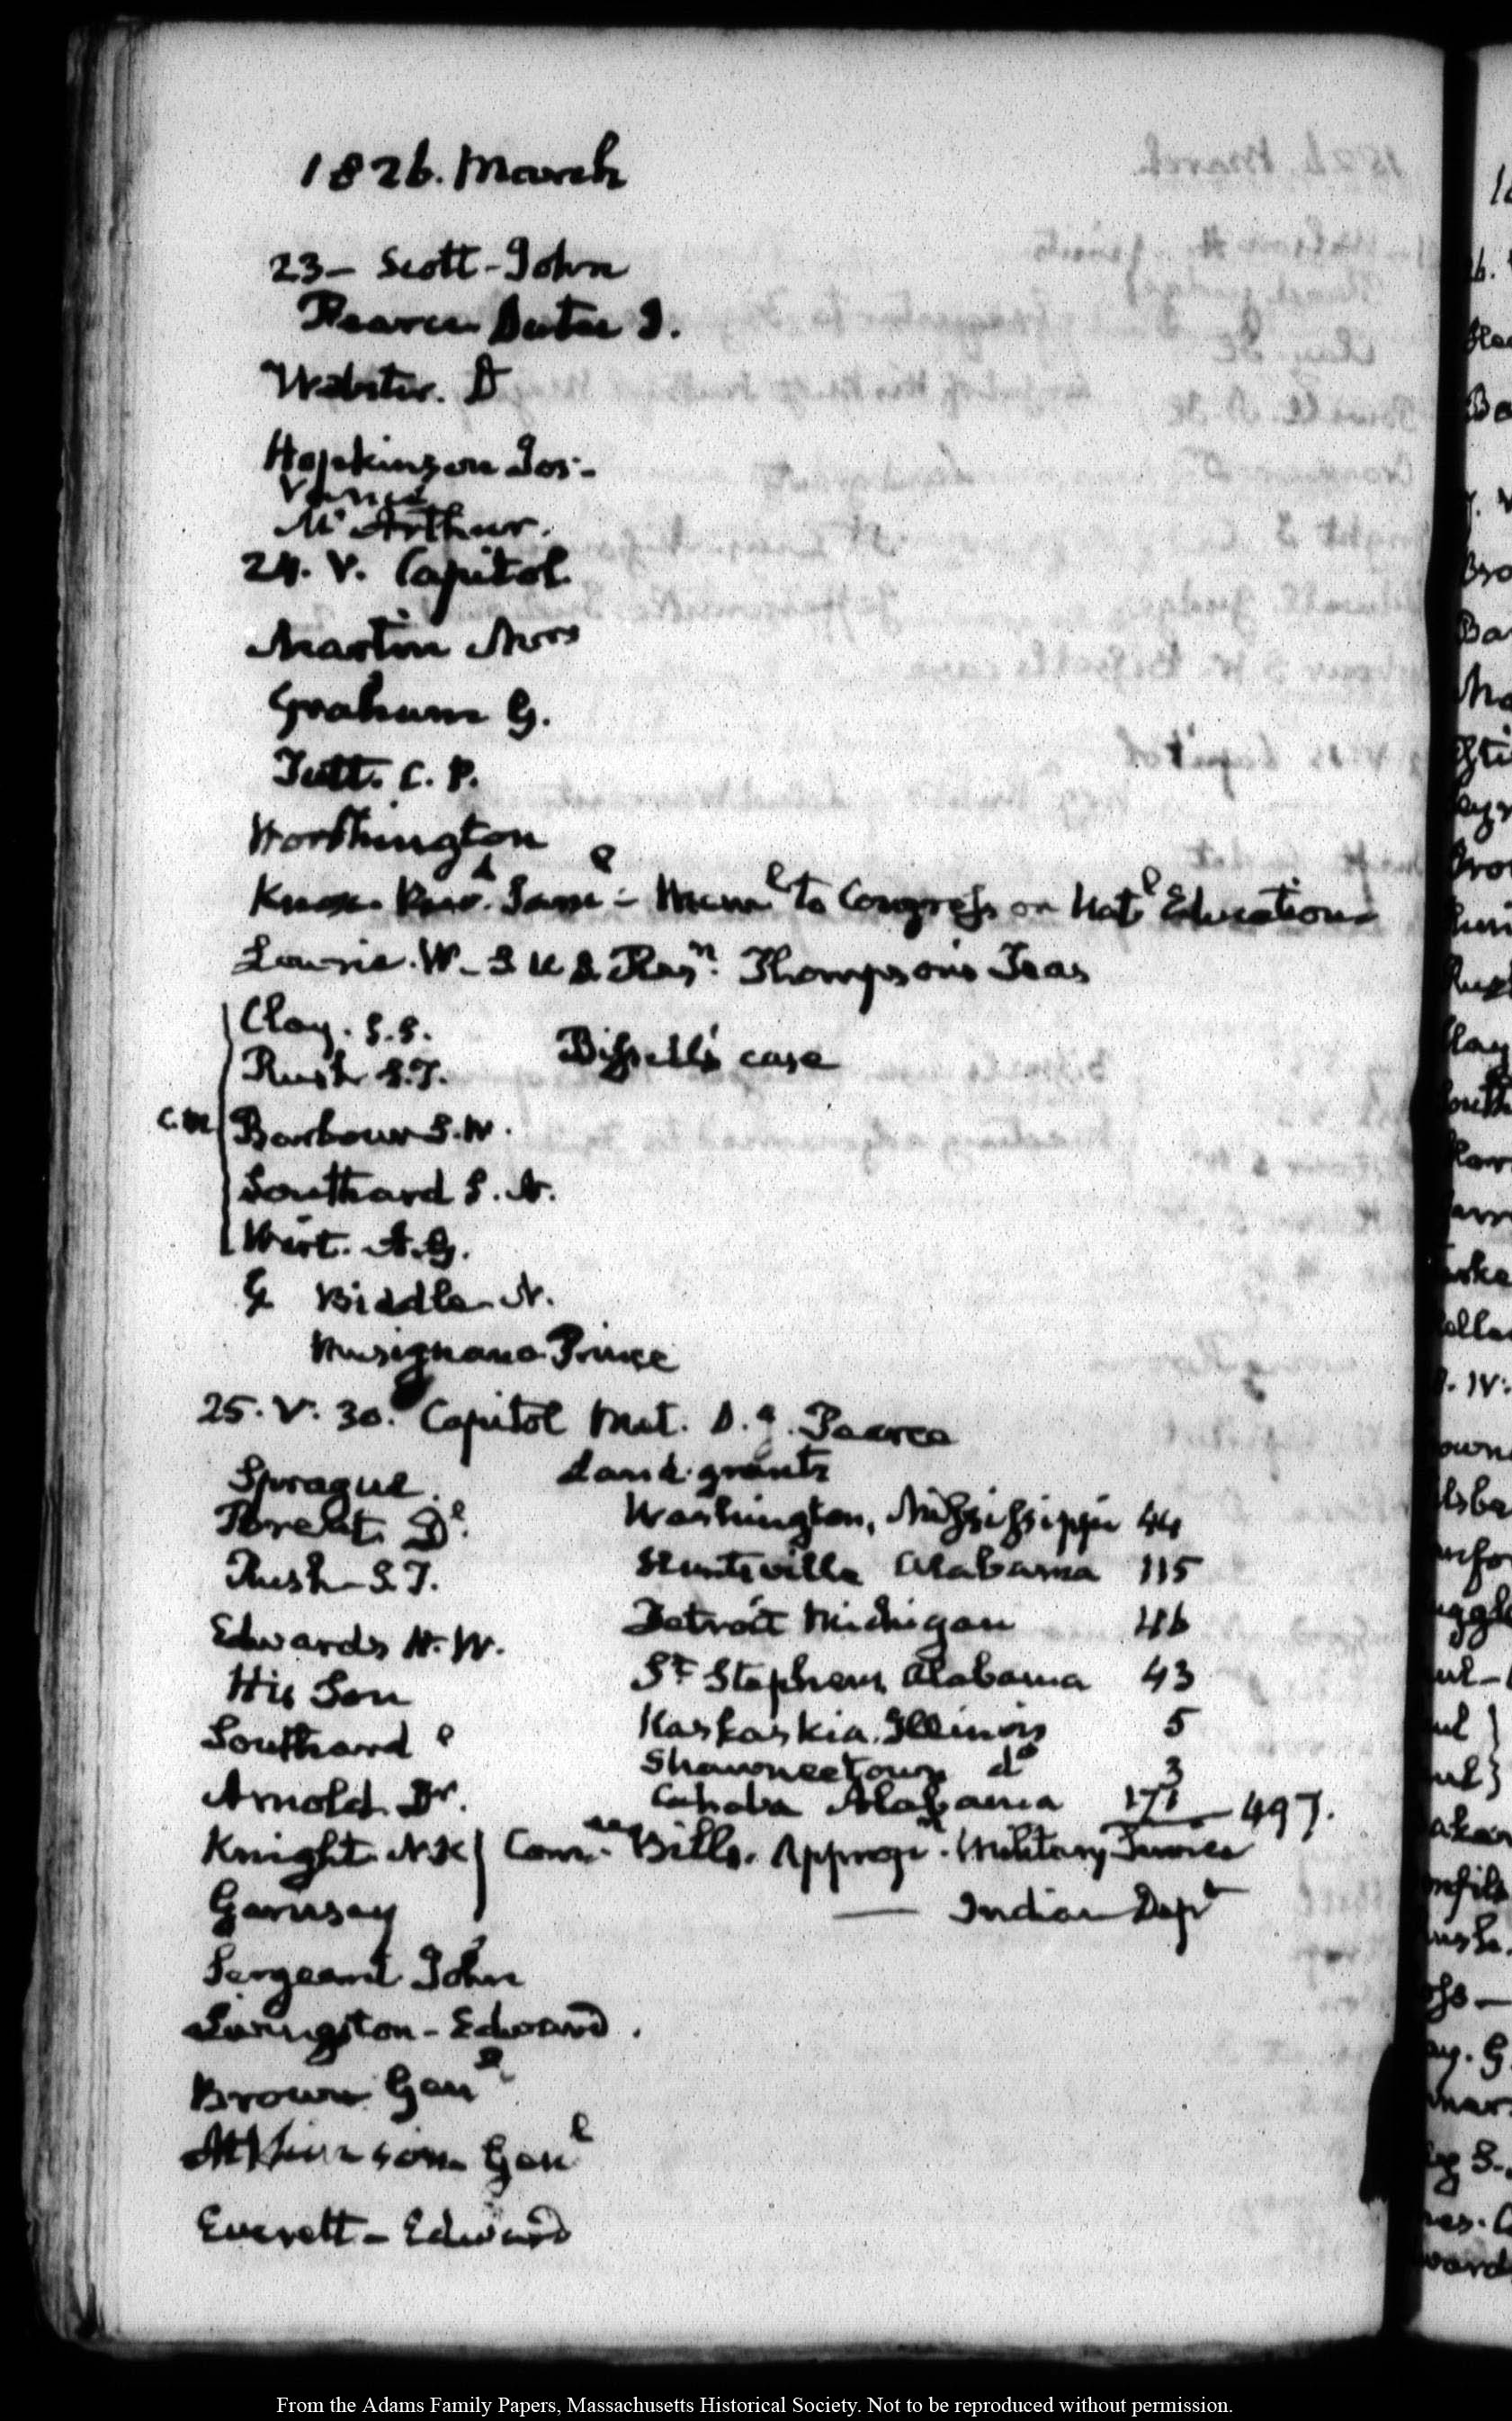 1826. March
23 - Scott - John
Pearce Dutee J.
Webster. D
Hopkinson Jos: -
Vance
Mc Arthur.
24. V. Capitol
Martin Mrs
Graham G.
Tutt. C. P.
Worthington
Knox. Revd. Saml - Meml to Congress on Natl Education
Lowrie. W - S U S Thompson's Teas
Clay. S.S.
Bissell's case
Rush S.T.
C.M Barbour S.W.
Southard S. N.
Wirt. A.G.
Biddle. N.
Musignano Prince
25. V. 30. Capitol Met. D. J. Pearce
Sprague. Land grants
Washington, Mississippi 44
Rush - S T. Huntsville Alabama 115
Edwards H. W. Detroit Michigan 46
His Son St Stephens Alabama 43
Southard Kaskaskia. Illinois 5
Shawneetown do 3
Arnold Dr. Cahaba Alabama 171 - 497.
Knight N. R Bills. Appropn. Military Service
Garnsey — Indian Dept
Sergeant John
Livingston - Edward.
Brown Genl
Atkinson Genl
Everett - Edward
From the Adams Family Papers, Massachusetts Historical Society. Not to be reproduced without permission.